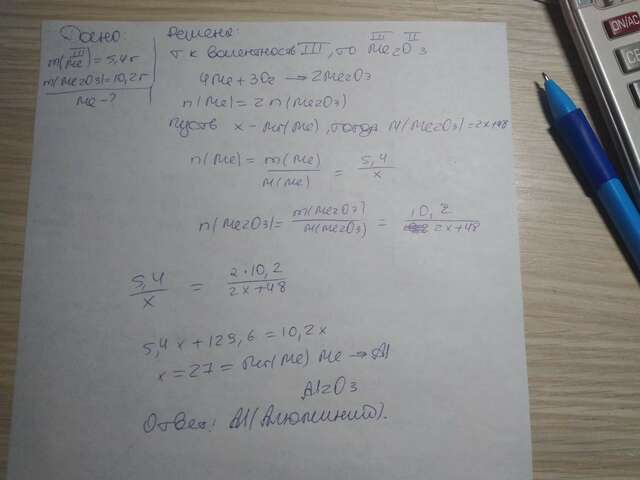 Дано:
m(Me) = 5,4 г
m(Me2O3) = 10,2 г
Me - ?
Решение:
Т.к валентность III, то Me2O3
III II
4Me + 3O2 → 2Me2O3
n(Me) = 2n(Me2O3)
Пусть x - Mr(Me), тогда M(Me2O3) = 2x+48
n(Me) = m(Me) / M(Me) = 5,4 / x
n(Me2O3) = m(Me2O3) / M(Me2O3) = 10,2 / 2x+48
5,4 / x = 2·10,2 / 2x+48
5,4x + 129,6 = 10,2x
x = 27 = Mr(Me) Me → Al
Al2O3
Ответ: Al (Алюминий).
ON/AC